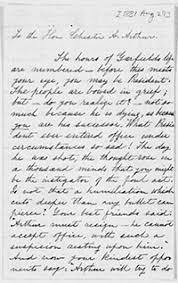 To the Hon Chester A. Arthur.
The hours of Garfield's life
are numbered—before this meets
your eye, you may be President.
The people are bowed in grief;
but—do you realize it?—not so
much because he is dying, as because
you are his successor. What President
ever entered office under
circumstances so sad! The day
he was shot, the thought rose in
a thousand minds that you might
be the instigator of the foul act.
Is not that a humiliation which
cuts deeper than any bullet can
pierce? Your best friends said:
"Arthur must resign—he cannot
accept office, with such a
suspicion resting upon him."
And now your kindest opponents
say: "Arthur will try to do